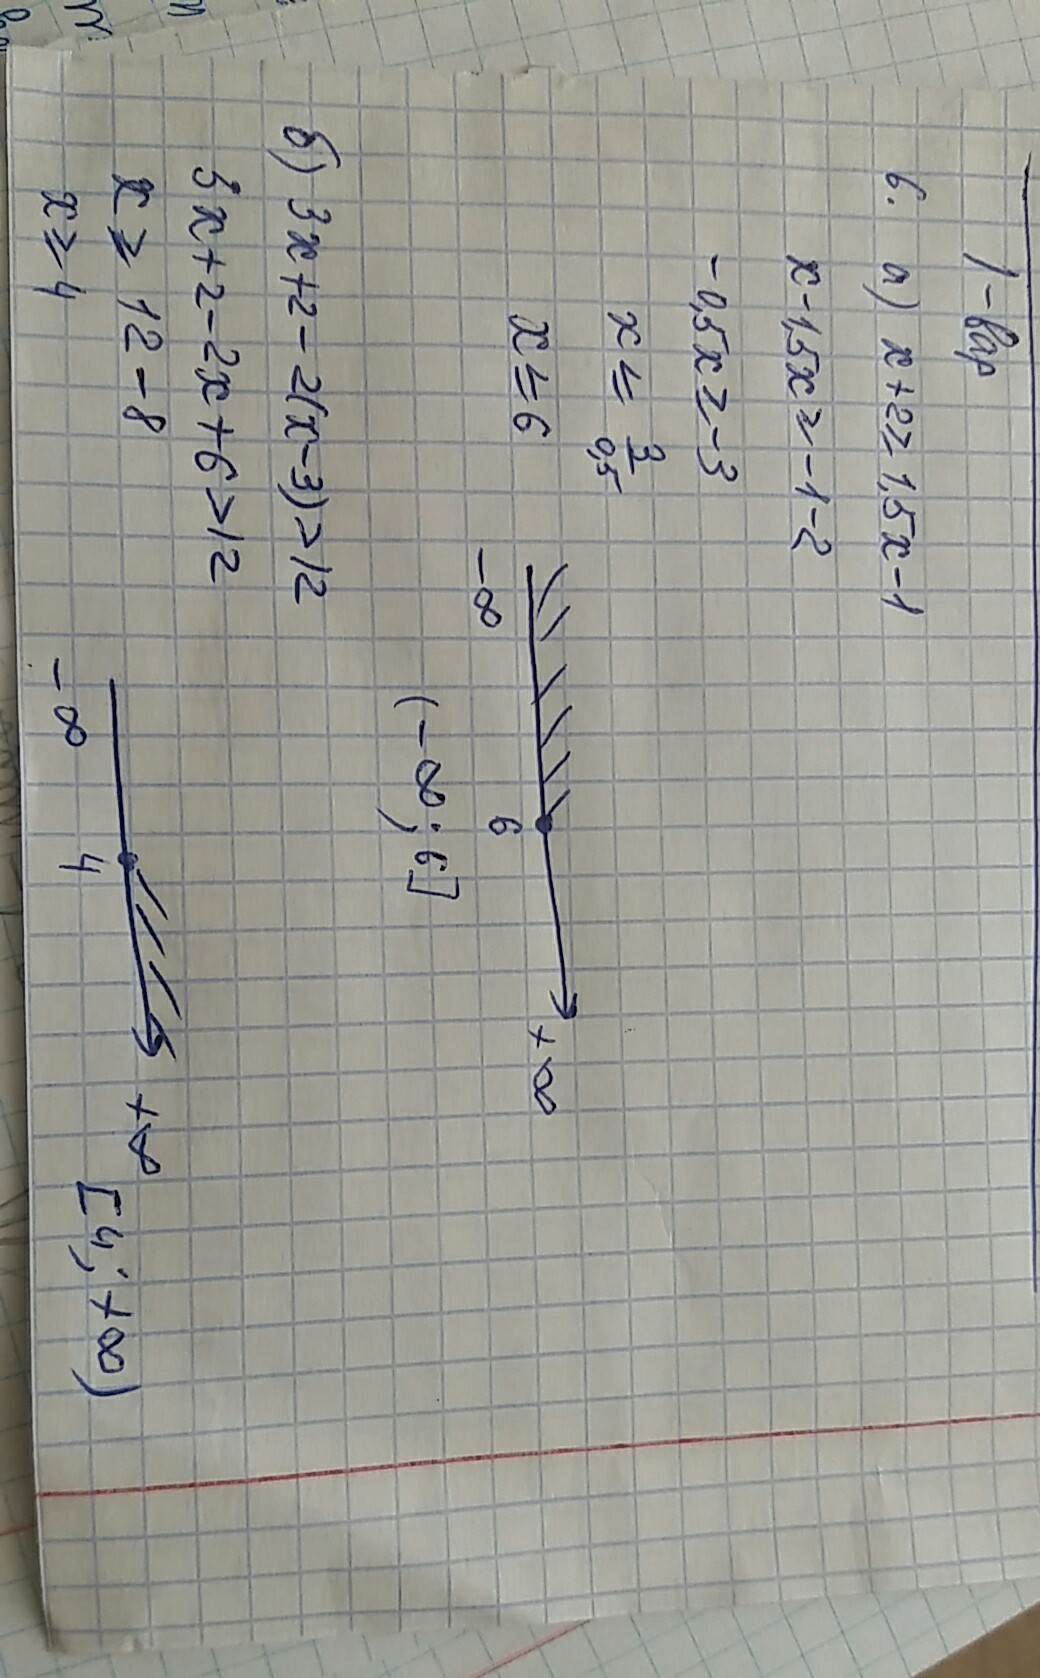 1-вар
6. а) x+2≥1,5x-1
x-1,5x≥-1-2
-0,5x≥-3
x≤ 3/0,5
x≤6
-∞ 6 +∞
(-∞; 6]
б) 3x+2-2(x-3)>12
3x+2-2x+6>12
x≥12-8
x≥4
-∞ 4 +∞ [4; +∞)